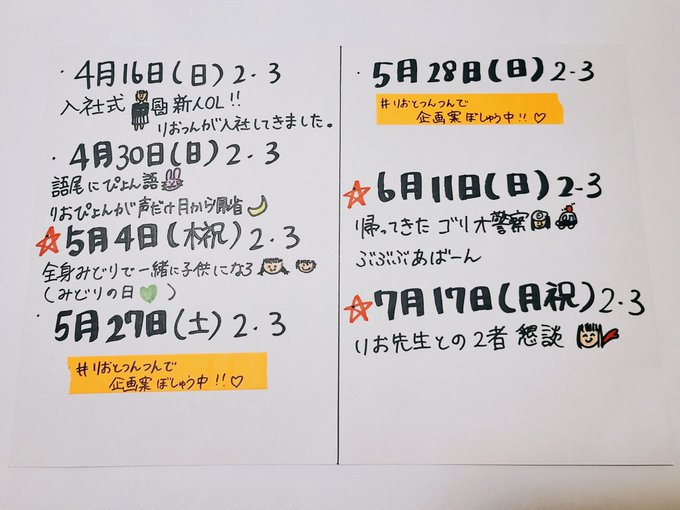 ・4月16日(日)2・3
入社式 新人OL!!
りおつんが入社してきました。
・4月30日(日)2・3
語尾にぴょん語
りおぴょんが声だけ月から帰省
☆5月4日(木祝)2・3
全身みどりで一緒に子供になる
(みどりの日💚)
・5月27日(土)2・3
#りおとつんつんで
企画案ぼしゅう中!!♡
・5月28日(日)2・3
#りおとつんつんで
企画案ぼしゅう中!!♡
☆6月11日(日)2・3
帰ってきた ゴリオ警察
ぶぶぶあばーん
☆7月17日(月祝)2・3
りお先生との2者懇談